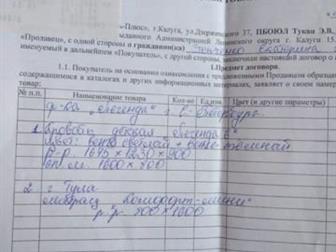 Плюс», г.Калуга, ул.Дзержинского 37, ПБОЮЛ Тукан Э.В.,
Администрацией Ленинского округа г. Калуга 15.
«Продавец», с одной стороны и гражданин(ка) Екатерина
именуемый в дальнейшем «Покупатель», с другой стороны, заключили настоящий договор о
1.Предмет договора.
1.1. Покупатель на основании ознакомления с предложенными Продавцом образцами
содержащимися в каталогах и других информационных материалах, заявляет о своем намерении
товар:
№ п.п. Наименование товара Кол-во Ед.изм. Цвет (и другие параметры)
ф-ка „Легенда" г. С-
1. Кровать детская „Легенда
цвет: венге светлый + венге темный
р-р. 1675 × 1250 × 900
сп. м. 1600 × 700
2 г Тула
матрац „Комфорт-мини"
р.р. 700 × 1600